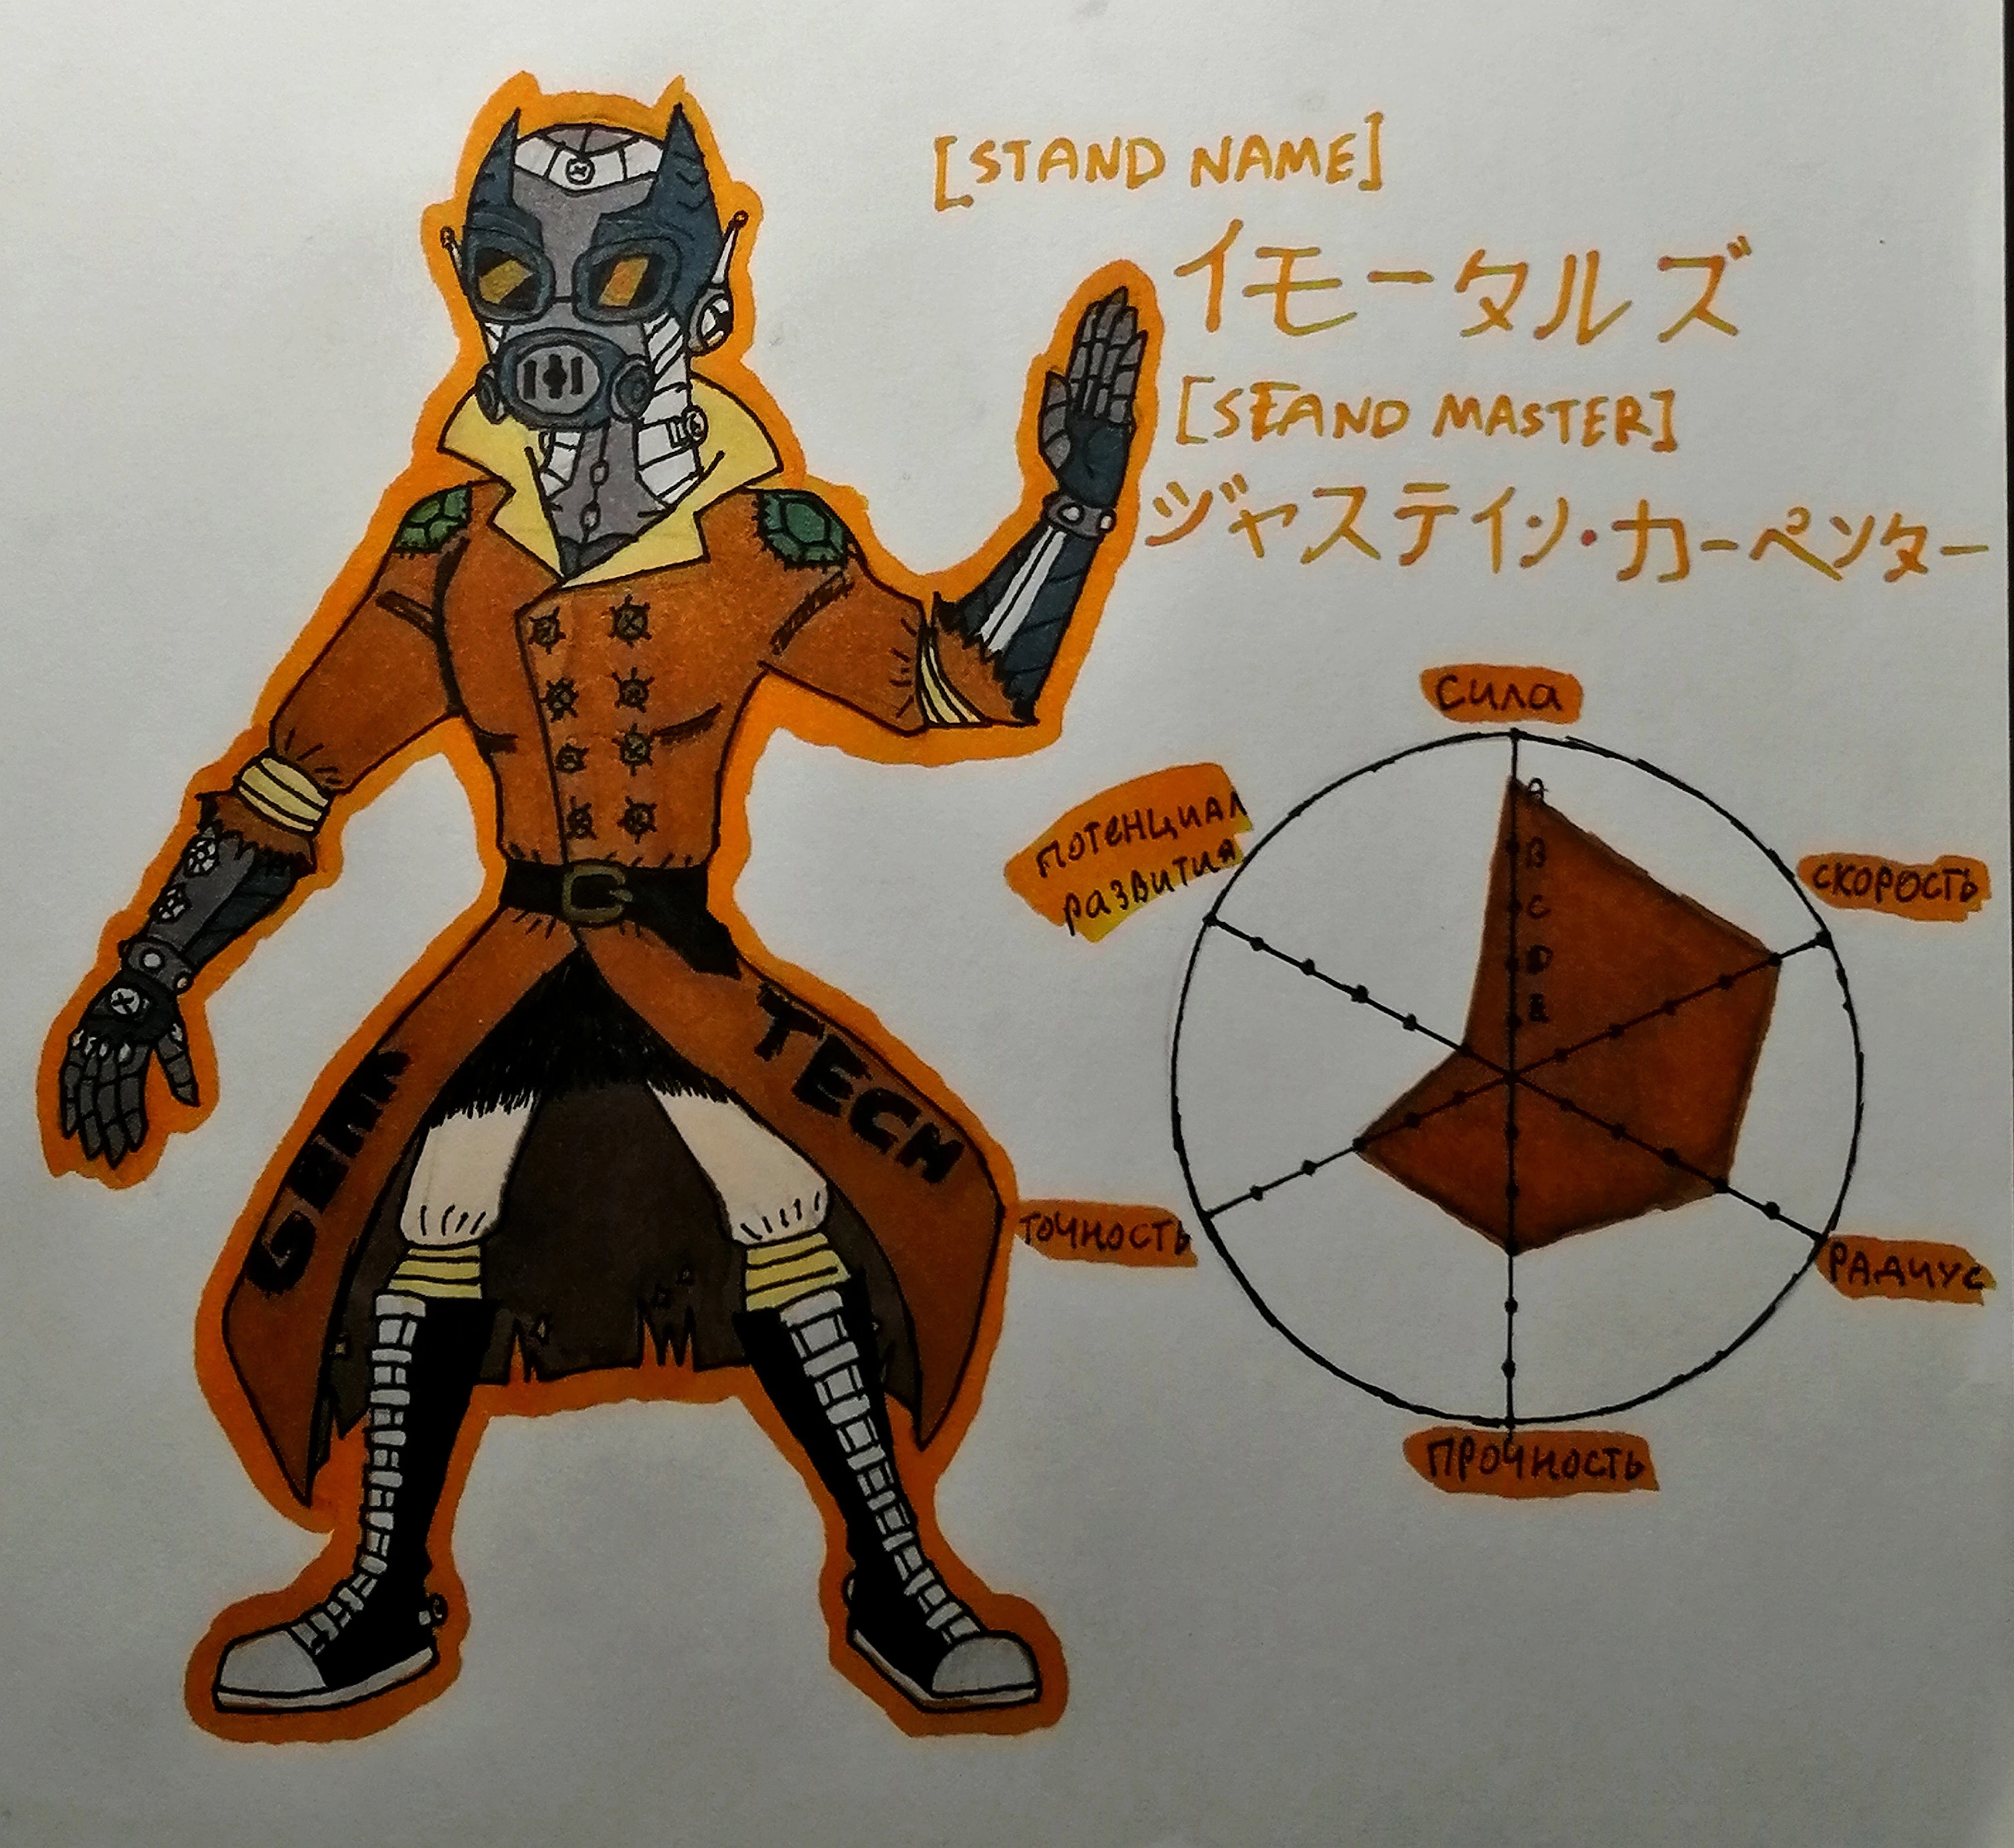 [STAND NAME]
イモータルズ
[SEAND MASTER]
ジャステイン・カーペンター
сила
скорость
потенциал
развития
A
B
C
D
E
точность
радиус
прочность
TECH